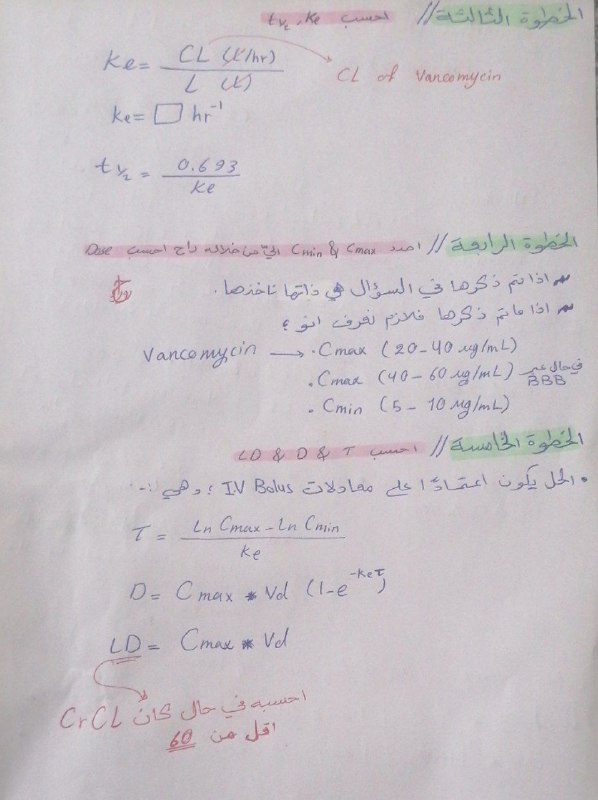 الخطوة الثالثة // احسب t½ ، Ke
Ke = CL (L/hr) / L (L)
CL of Vancomycin
Ke = □ hr⁻¹
t½ = 0.693 / Ke
الخطوة الرابعة // احدد Cmax & Cmin الي من خلاله راح احسب Dose
اذا تم ذكرها في السؤال هي ذاتها ناخذها .
اذا ما تم ذكرها فلازم نعرف انو :
Vancomycin → . Cmax (20-40 µg/mL)
. Cmax (40-60 µg/mL) في حال عبر BBB
. Cmin (5-10 µg/mL)
الخطوة الخامسة // احسب LD & D & T
. الحل يكون اعتمادًا على معادلات IV Bolus ؛ وهي :-
T = Ln Cmax - Ln Cmin / Ke
D = Cmax * Vd (1-e^-KeT)
LD = Cmax * Vd
احسبه في حال كان CrCL
اقل من 60